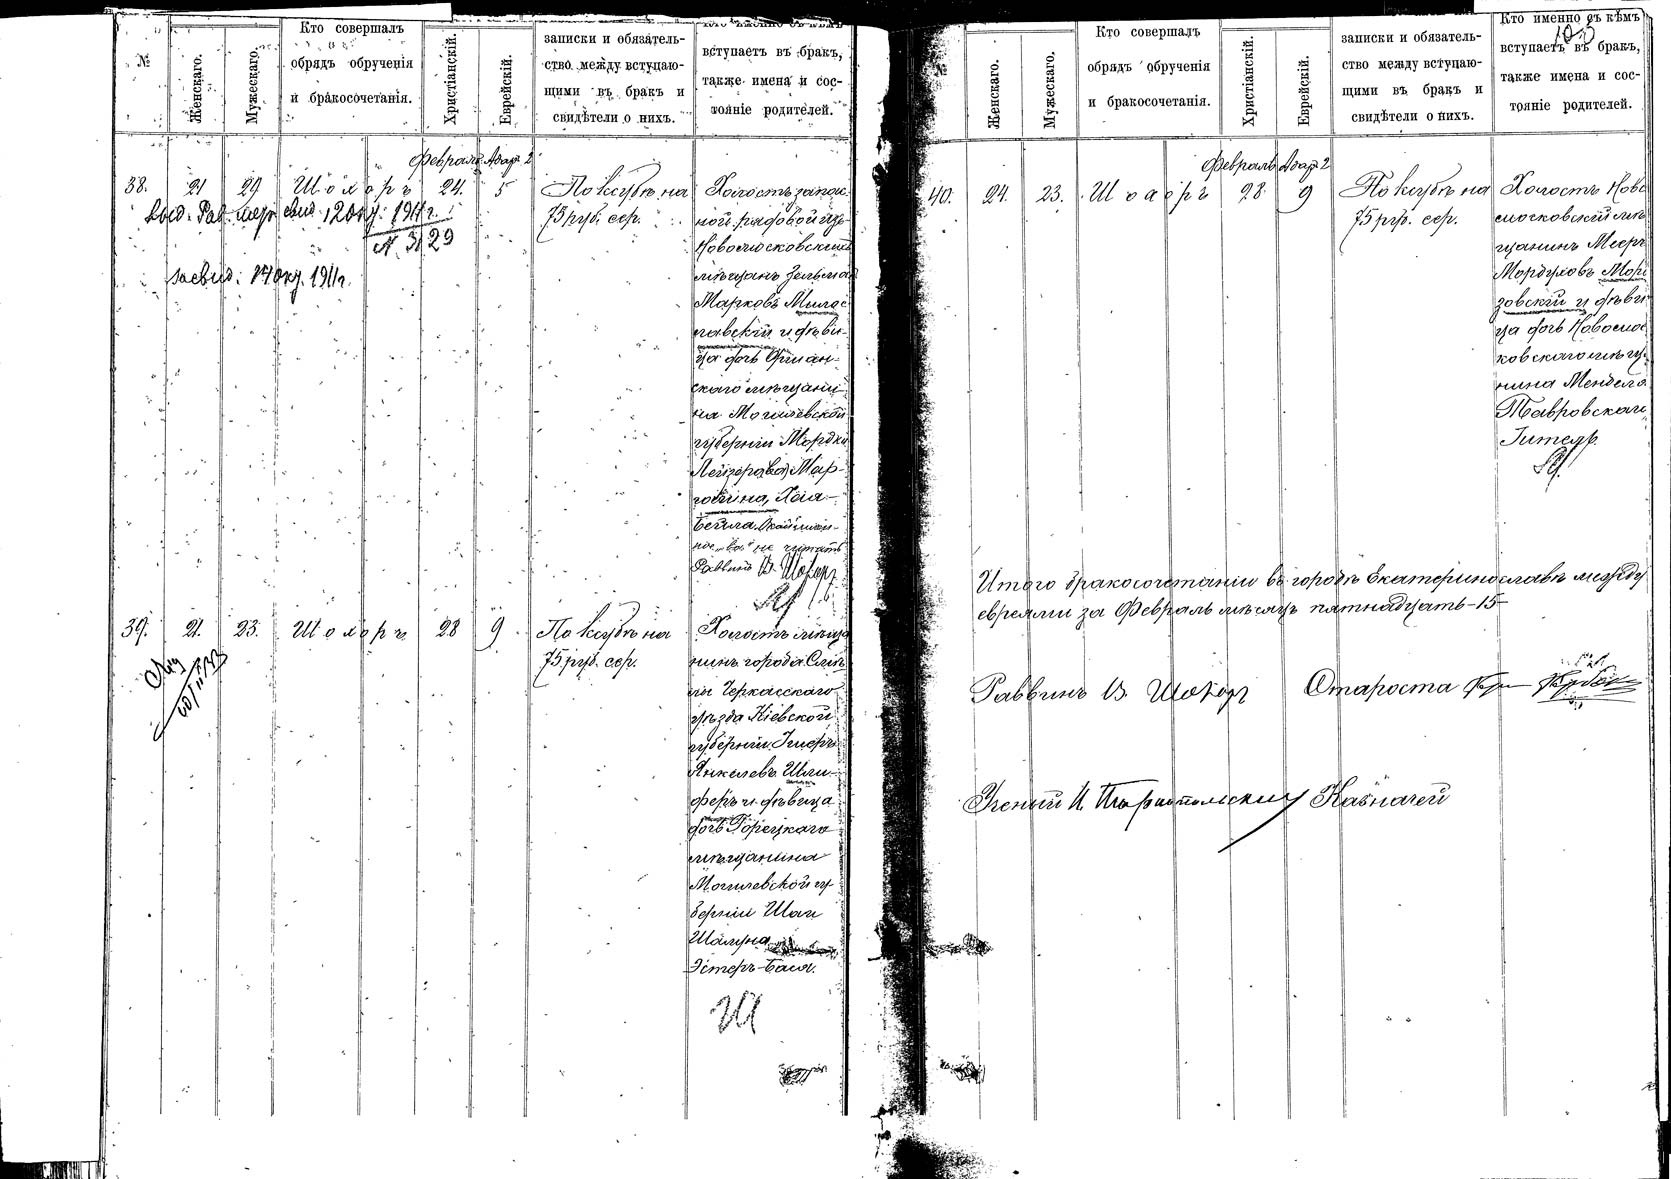 №
Женскаго.
Мужескаго.
Кто совершалъ
обрядъ обрученія
и бракосочетанія.
Христіанскій.
Еврейскій.
записки и обязатель-
ство между вступаю-
щими въ бракъ и
свидѣтели о нихъ.
вступаетъ въ бракъ,
также имена и сос-
тояніе родителей.
Февраль Адаръ 2
38. 21 29 Шохоръ 24. 5 По ксубѣ на
75 руб. сер.
12 окт. 1911 г.
№ 3129
засвид. 17 окт. 1911 г.
Холостъ запас-
ной рядовой изъ
Новомосковскихъ
мѣщанъ Зельман
Марковъ Милос
лавскій и дѣви-
ца дочь Оршан-
скаго мѣщани-
на Могилевской
губерніи Мордки
Лейзерова Мар-
голина, Хая-
Бейла
не читать
Раввинъ В. Шохоръ
39. 21. 23. Шохоръ 28 9 По ксубѣ на
75 руб. сер.
Холостъ мѣща
нинъ города Смѣ
лы Черкасскаго
уѣзда Кіевской
губерніи
Янкелевъ Шли-
феръ и дѣвица
дочь Горецкаго
мѣщанина
Могилевской гу-
берніи Шаи
Эстеръ-Бася.
Женскаго.
Мужескаго.
Кто совершалъ
обрядъ обрученія
и бракосочетанія.
Христіанскій.
Еврейскій.
записки и обязатель-
ство между вступаю-
щими въ бракъ и
свидѣтели о нихъ.
Кто именно съ кѣмъ
вступаетъ въ бракъ,
также имена и сос-
тояніе родителей.
Февраль Адаръ 2
40. 24. 23. Шохоръ 28 9 По ксубѣ на
75 руб. сер.
Холостъ Ново
московскій мѣ
щанинъ Мееръ
Мордуховъ Мор
зовскій и дѣви
ца дочь Новомос
ковскаго мѣщ
нина Менделя
Тавровскаго
Гитель
Итого бракосочетаній въ городѣ Екатеринославѣ между
евреями за Февраль мѣсяцъ пятнадцать-15-
Раввинъ В. Шохоръ Староста
Ученый И. Тарнопольскій Казначей